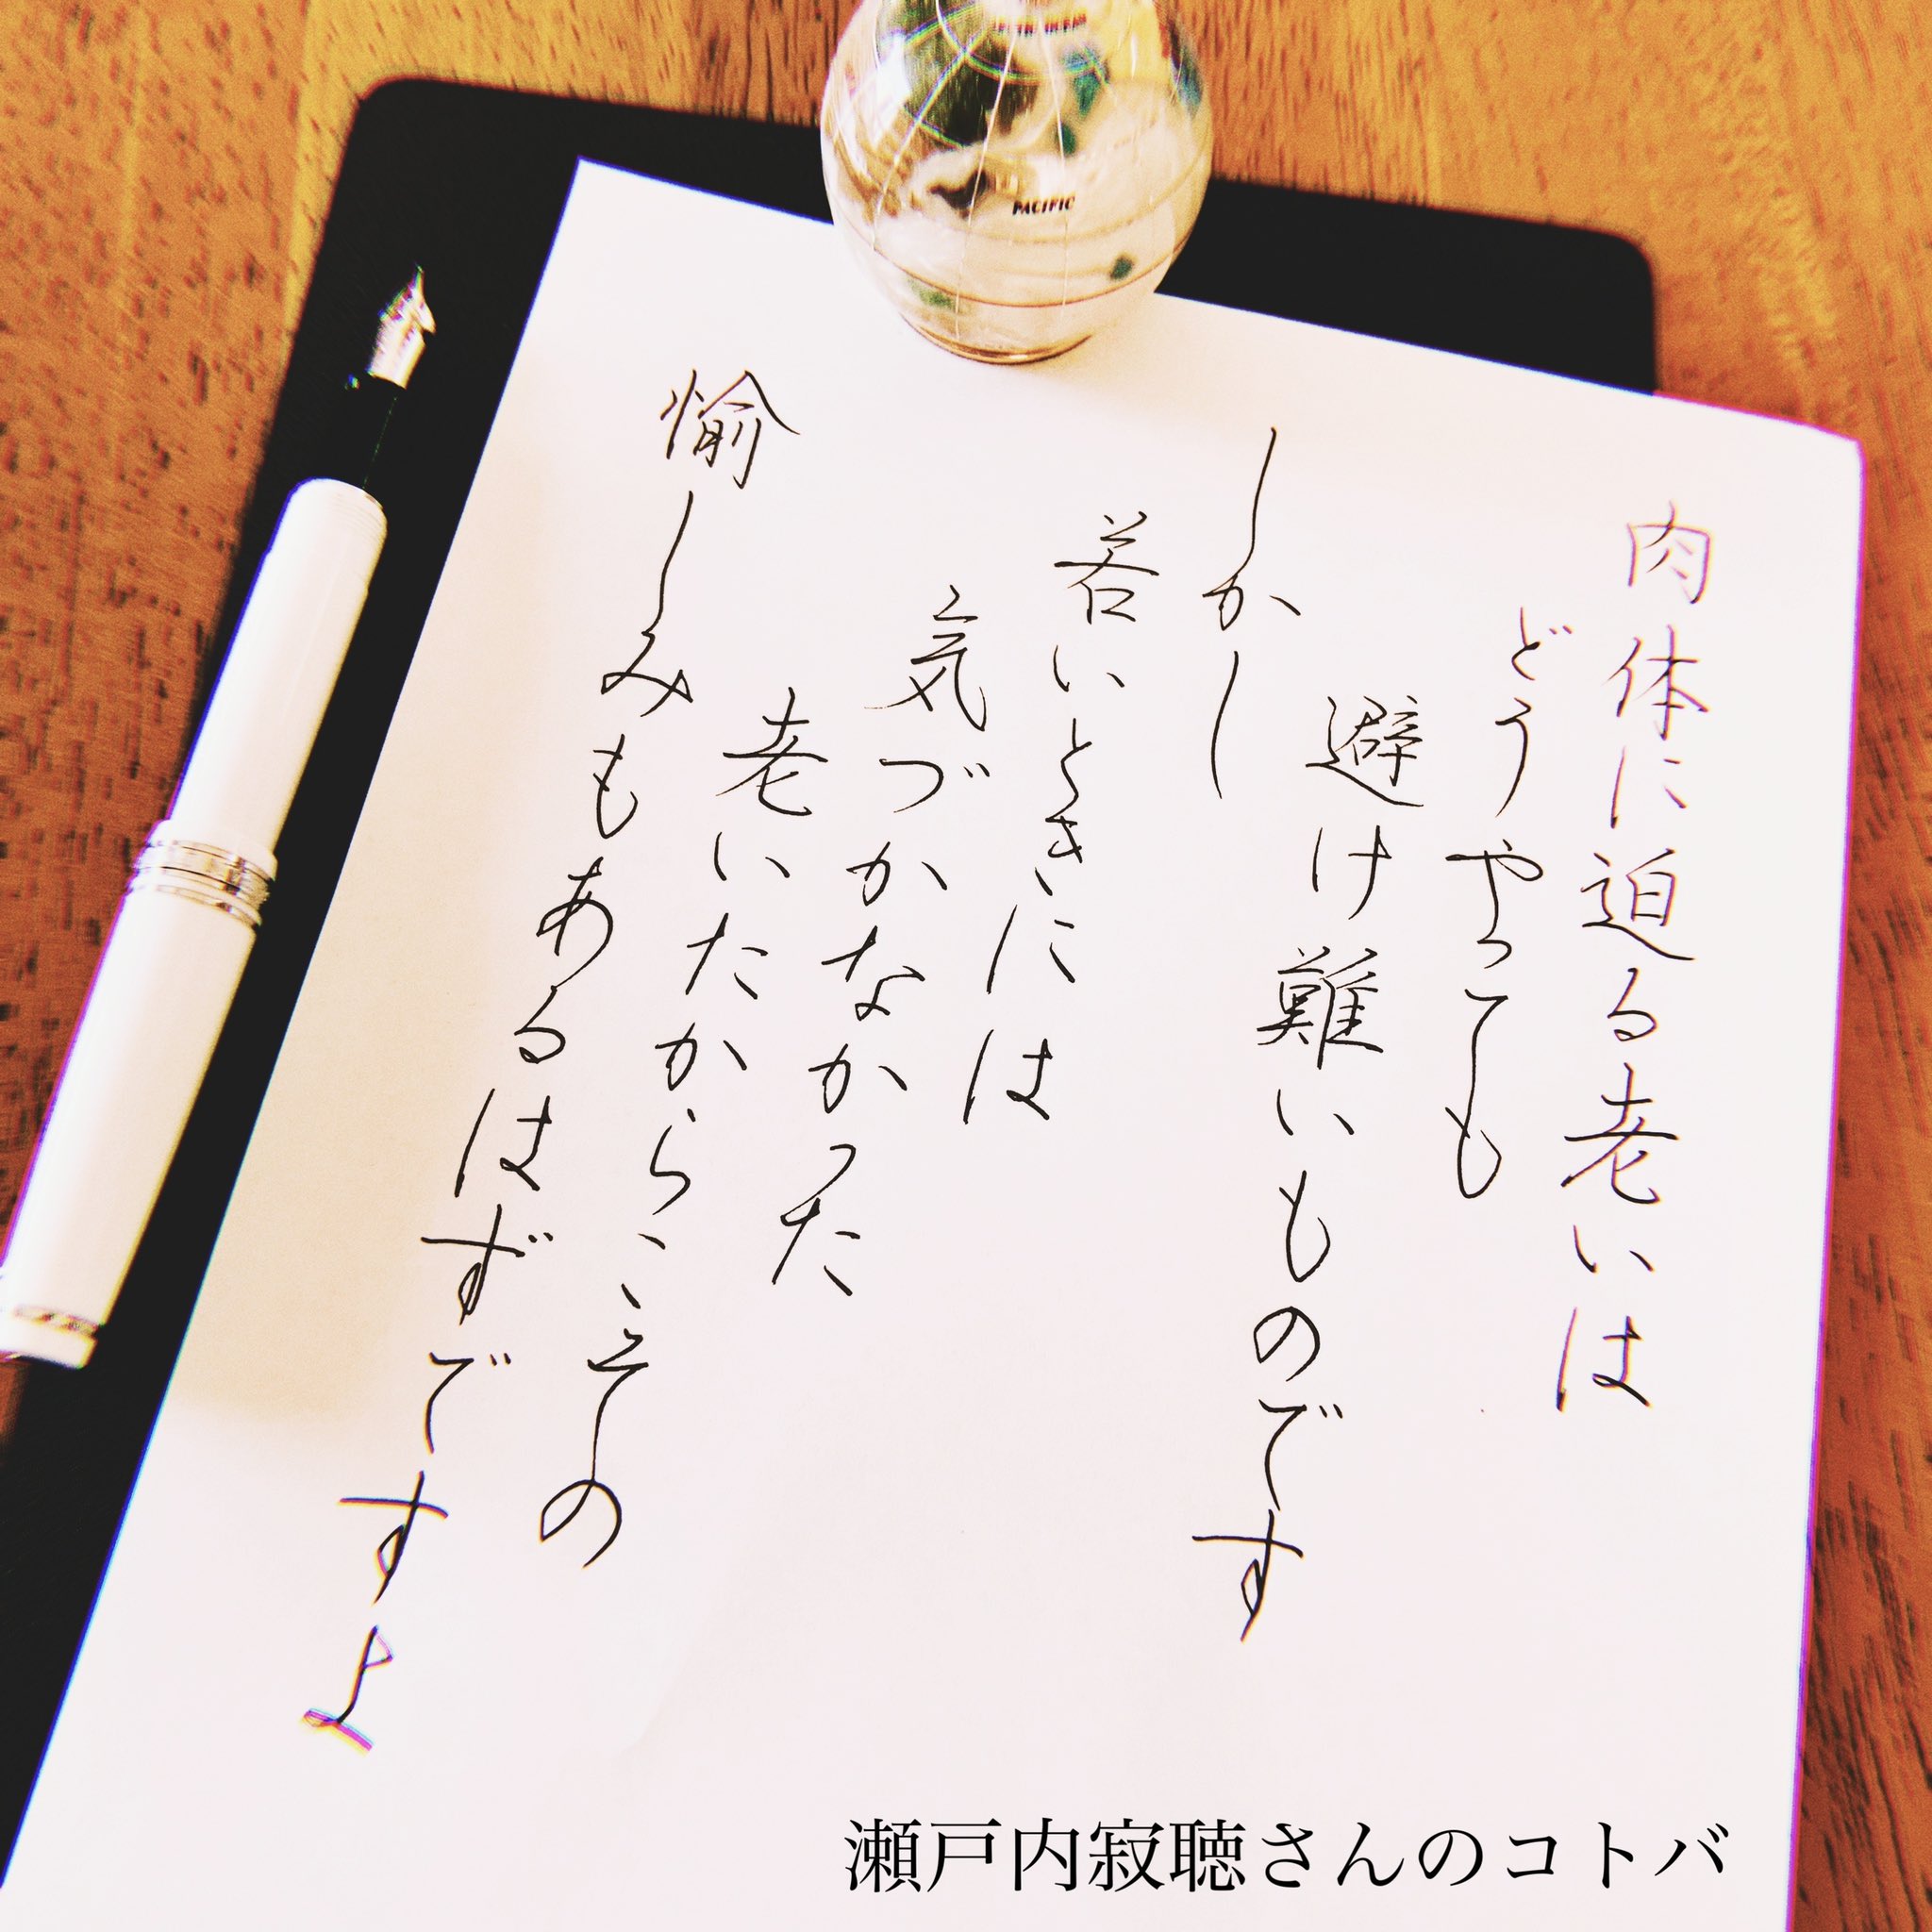 肉体に迫る老いは
どうやっても
避け難いものです
しかし
若いときには
気づかなかった
老いたからこその
愉しみもあるはずですよ
瀬戸内寂聴さんのコトバ
PACIFIC